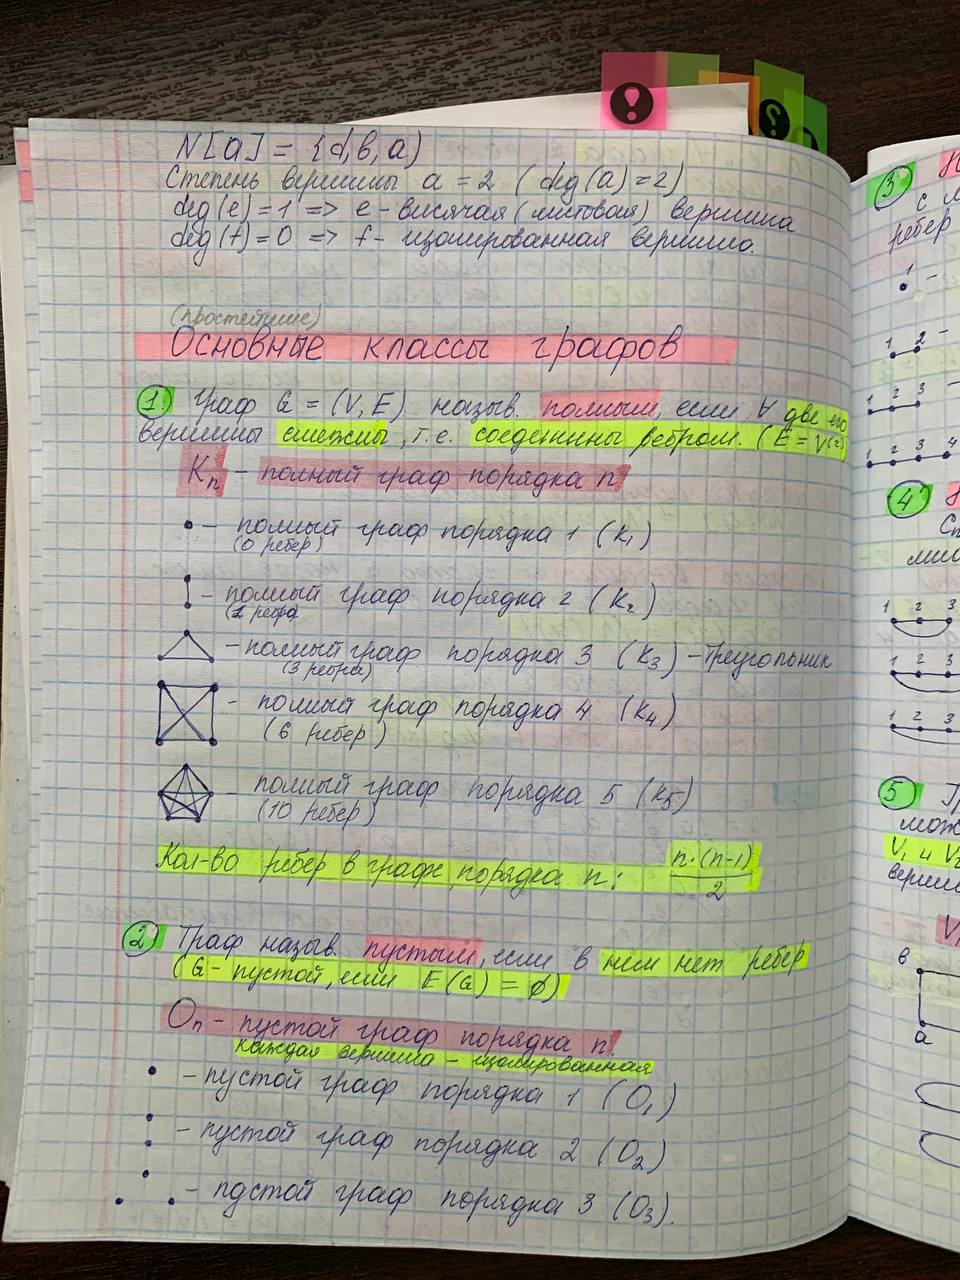 N[a] = {d, b, a}
Степень вершины a = 2 (deg(a)=2)
deg(e)=1 => e - висячая (листовая) вершина
deg(f)=0 => f - изолированная вершина.
(простейшие)
Основные классы графов
1. Граф G = (V, E) назыв. полным, если ∀ две его
вершины смежны, т.е. соединены ребром. (E = V⁽²⁾)
Kn - полный граф порядка n
- полный граф порядка 1 (K₁)
(0 ребер)
- полный граф порядка 2 (K₂)
(1 ребро)
- полный граф порядка 3 (K₃) - Треугольник
(3 ребра)
- полный граф порядка 4 (K₄)
(6 ребер)
- полный граф порядка 5 (K₅)
(10 ребер)
Кол-во ребер в графе порядка n: n·(n-1)/2
2 Граф назыв. пустым, если в нем нет ребер
(G - пустой, если E(G) = ∅)
On - пустой граф порядка n
каждая вершина - изолированная
- пустой граф порядка 1 (O₁)
- пустой граф порядка 2 (O₂)
- пустой граф порядка 3 (O₃).
3
ребер
1 -
1 2 -
1 2 3 -
1 2 3 4
4
1 2 3
1 2 3
1 2 3
5
V₁ и V₂
в
а